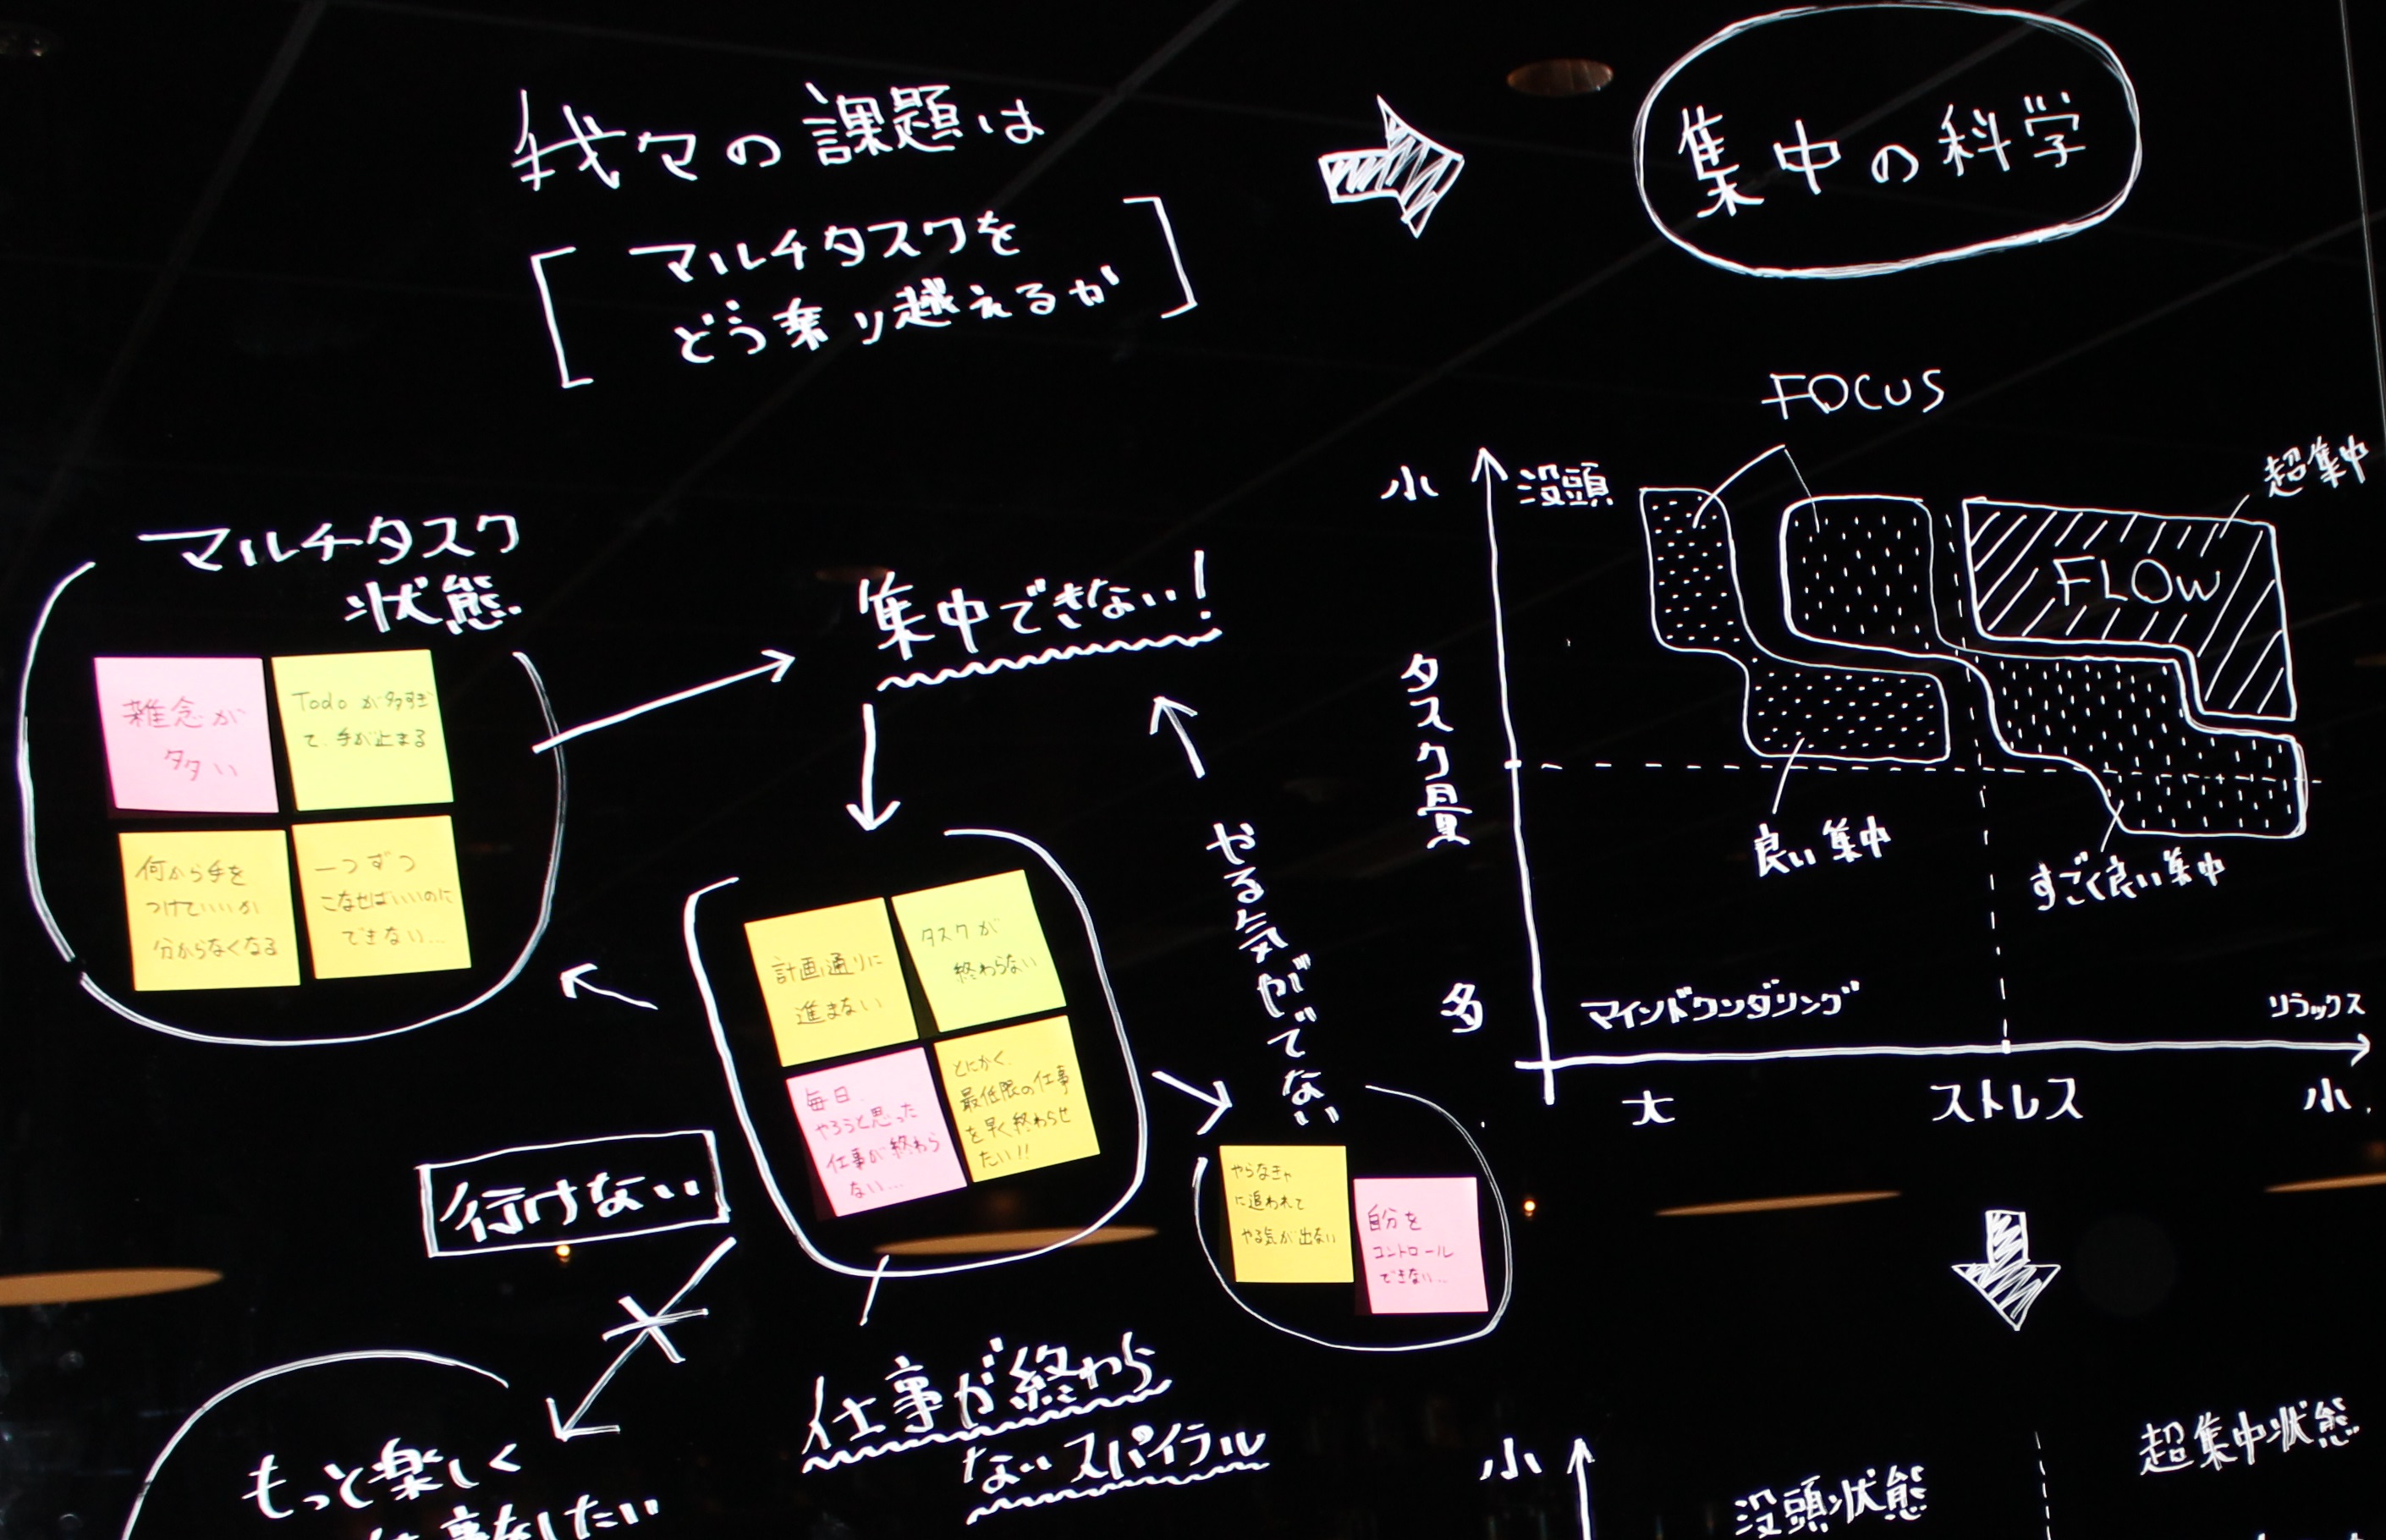 我々の課題は
マルチタスクを
どう乗り越えるか
集中の科学
マルチタスク
状態
雑念が
多い
Todoが多すぎ
て、手が止まる
何から手を
つけていいか
分からなくなる
一つずつ
こなせばいいのに
できない...
集中できない!
計画通りに
進まない
タスクが
終わらない
毎日、
やろうと思った
仕事が終わら
ない...
とにかく、
最低限の仕事
を早く終わらせ
たい!!
やる気がでない
やらなきゃ
に追われて
やる気が出ない
自分を
コントロール
できない...
仕事が終わら
ないスパイラル
行けない
もっと楽しく
仕事をしたい
FOCUS
小
没頭
超集中
FLOW
タスク量
良い集中
すごく良い集中
多
マインドワンダリング
リラックス
大
ストレス
小
小
没頭状態
超集中状態